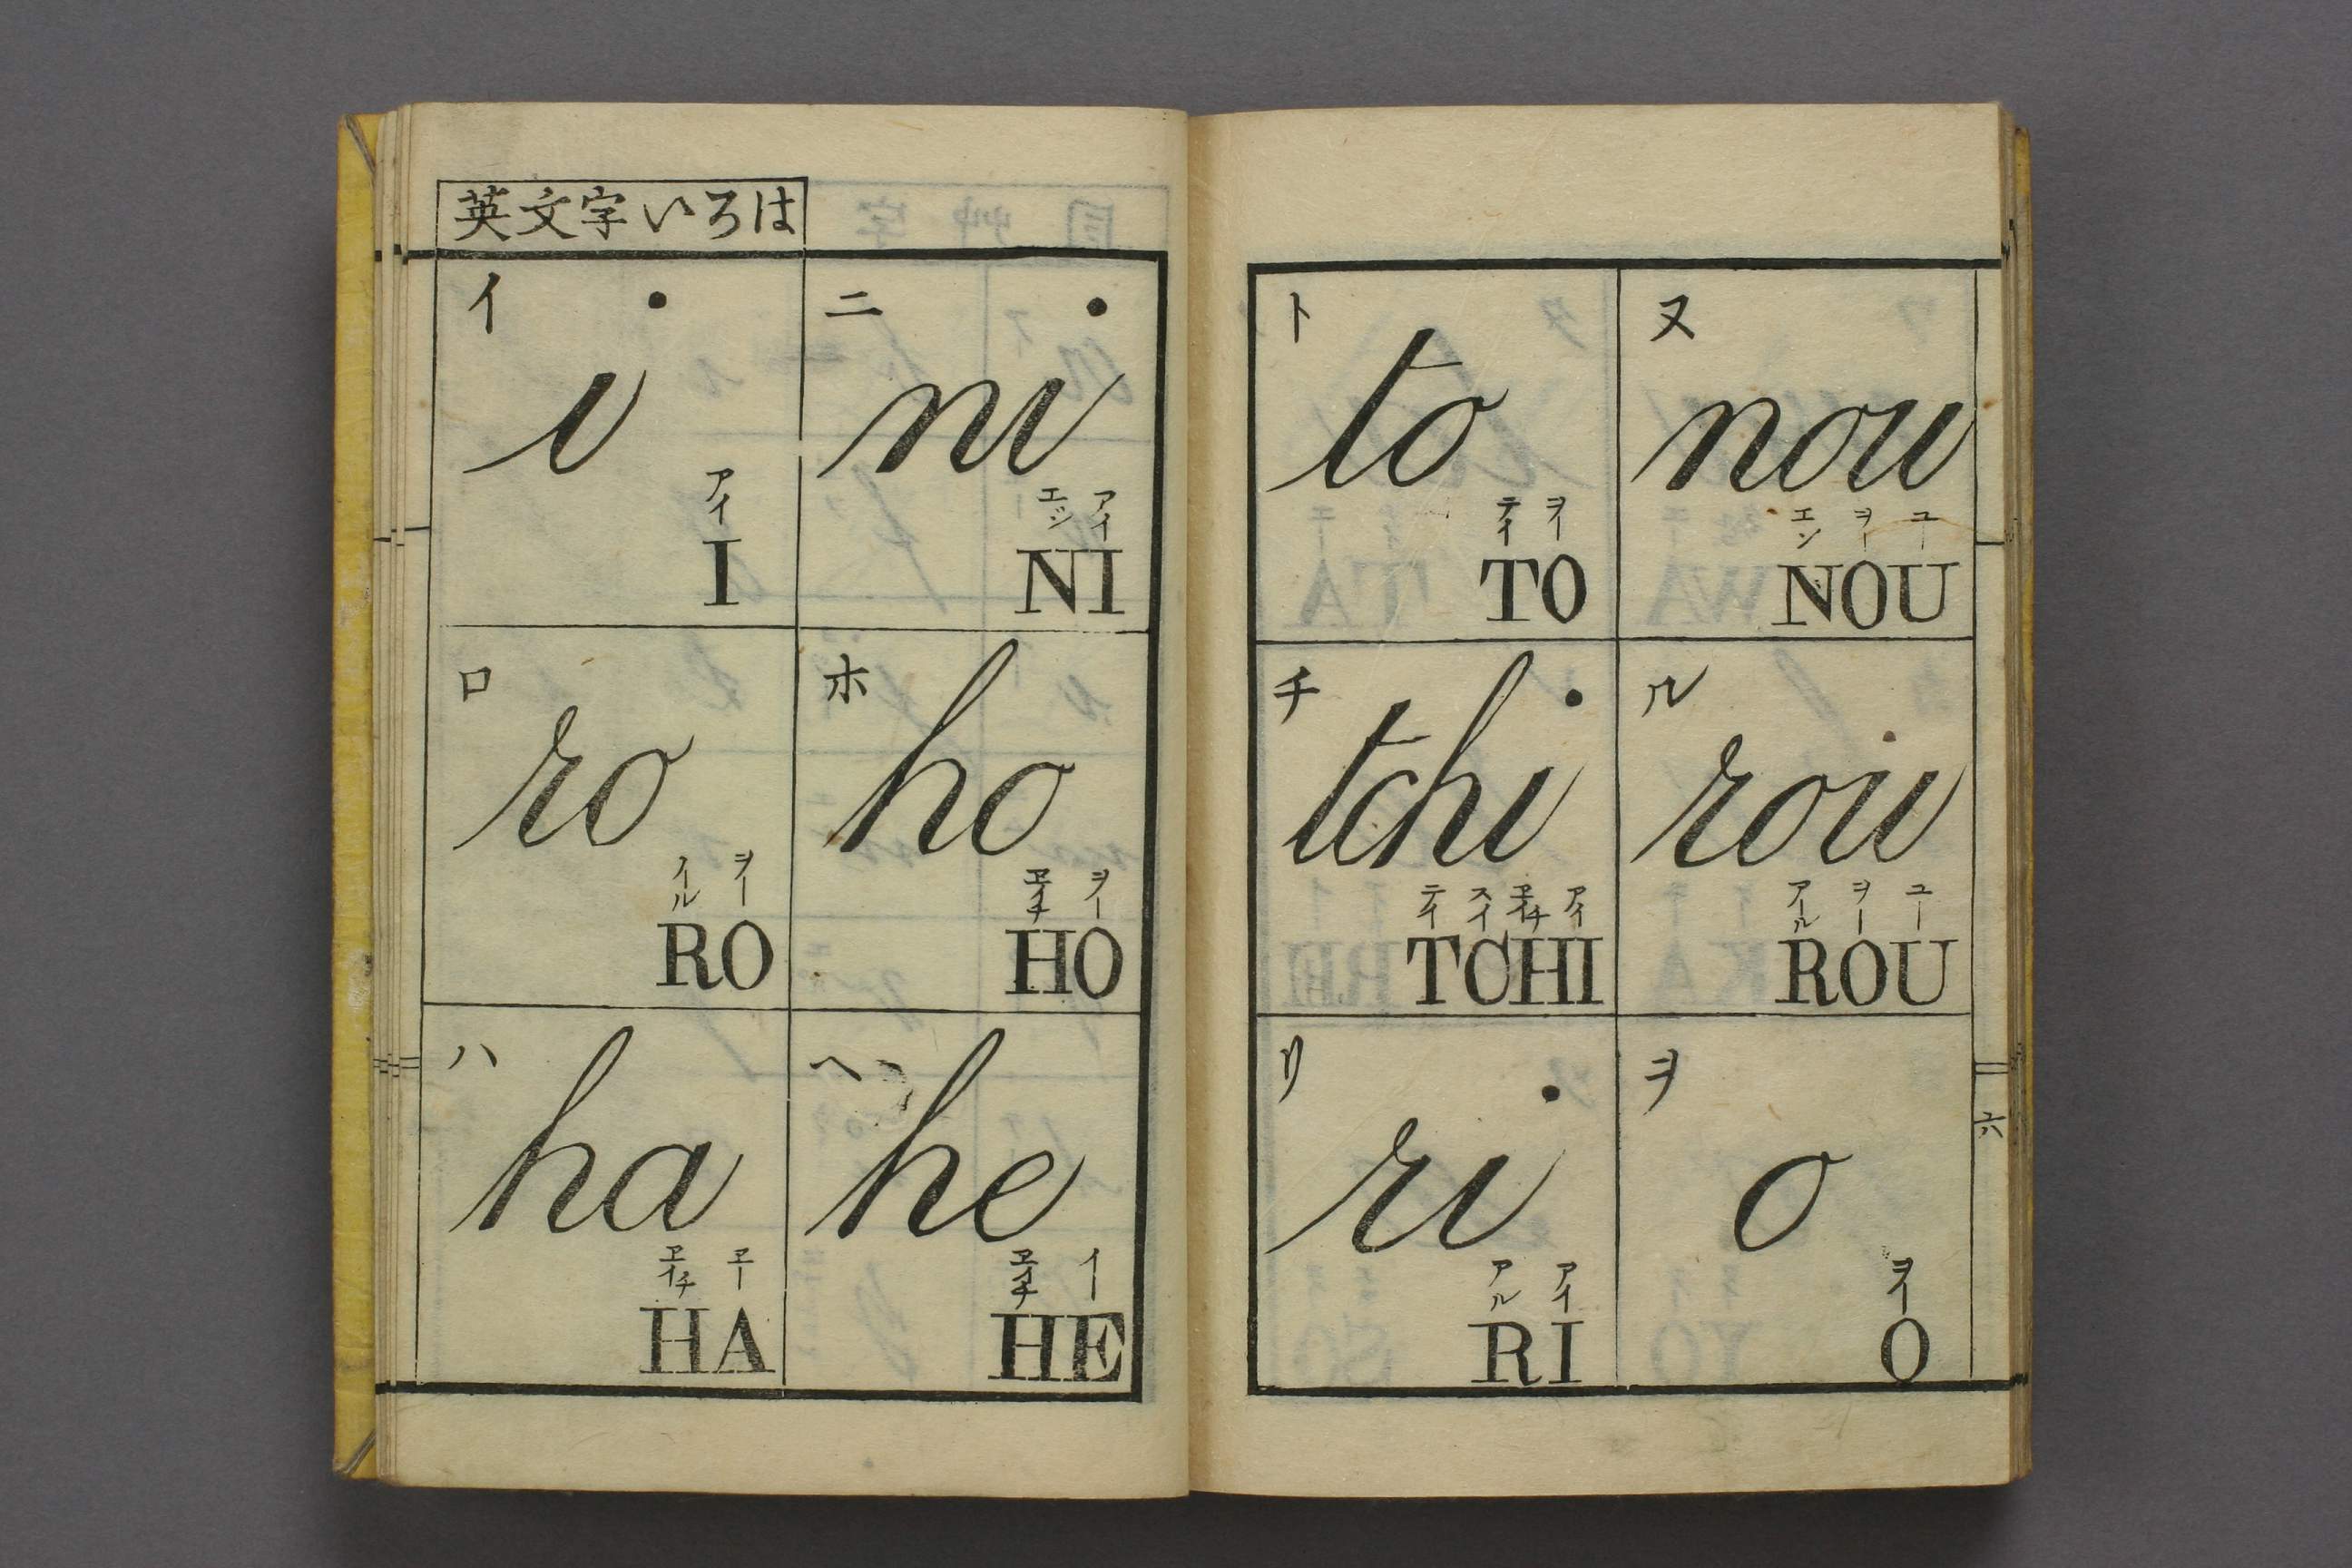 英文字いろは
イ
i
アイ
I
ロ
ro
ヲー
RO
ハ
ha
エイチ エー
HA
ニ
ni
エン アイ
NI
ホ
ho
エイチ ヲー
HO
ヘ
he
エイチ イー
HE
ト
to
テイ ヲー
TO
チ
tchi
テイ スイ エイチ アイ
TCHI
リ
ri
アル アイ
RI
ヌ
nou
エン ヲー ユー
NOU
ル
rou
アール ヲー ユー
ROU
ヲ
o
ヲー
O
六